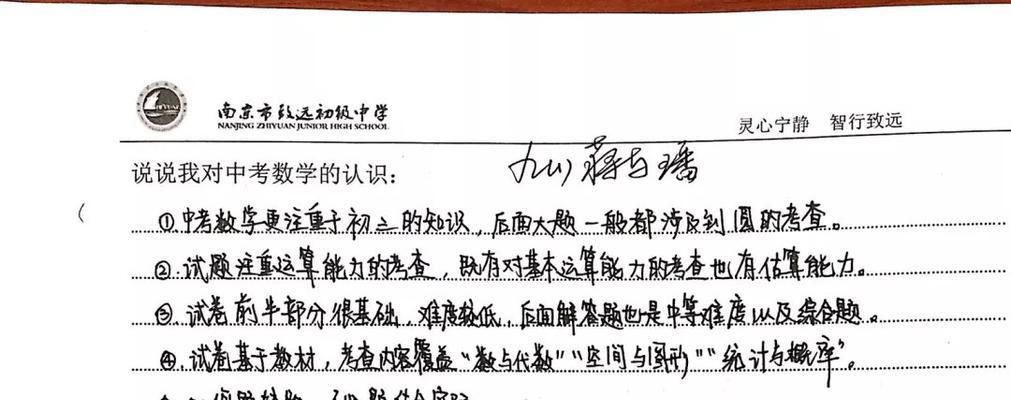 南京市致远初级中学
NANJING ZHIYUAN JUNIOR HIGH SCHOOL
灵心宁静 智行致远
说说我对中考数学的认识：
①中考数学更注重于初三的知识，后面大题一般都涉及到圆的考查。
②.试题注重运算能力的考查，既有对基本运算能力的考查也有估算能力。
③.试卷前半部分很基础，难度较低，后面解答题也是中等难度以及综合题。
④.试卷基于教材，考查内容覆盖“数与代数”“空间与图形”“统计与概率”。